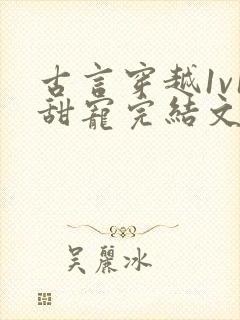 古言穿越1v1
甜寵完結文
吴麗冰